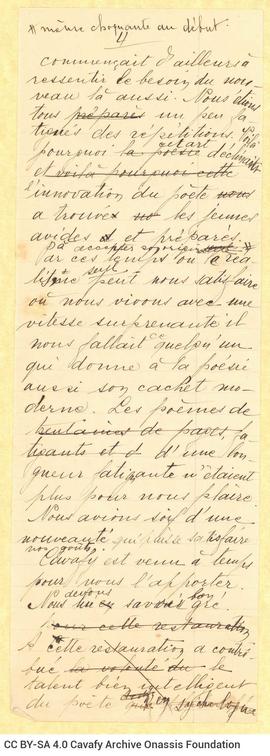 même choquante au début.
4
commençait d'ailleurs à
ressentir le besoin du nou
veau là aussi. Nous étions
tous préparés un peu fa
tigués des répétitions. Voilà
pourquoi la poésie cet art déclinait
et voilà pourquoi cette
l'innovation du poète nous
a trouvé les jeunes
avides et préparés
à accepter
Par ces temps où réa
lisme seul peut nous satisfaire
où nous vivons avec une
vitesse surprenante il
nous fallait quelqu'un
qui donne à la poésie
aussi son cachet mo
derne. Les poèmes de
trentaines de pages, fa
tigants et d'une lon
gueur fatigante n'étaient
plus pour nous plaire.
Nous avions soif d'une
nouveauté qui puisse satisfaire
nos goûts.
Cavafy est venu à temps
pour nous l'apporter.
Nous devons savoir bon gré.
pour cette restauration
A cette restauration a contri
bué la volonté du le
talent bien intelligent
du poète
CC BY-SA 4.0 Cavafy Archive Onassis Foundation